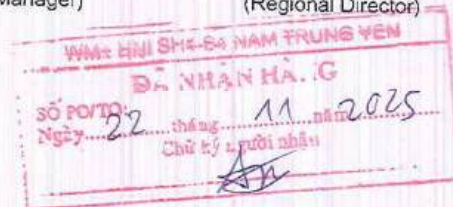 Manager)
(Regional Director)
WM+ HNI SH4-B4 NAM TRUNG YÊN
ĐÃ NHẬN HÀNG
SỐ PO/TO:
Ngày 22 tháng 11 năm 2025
Chữ ký người nhận